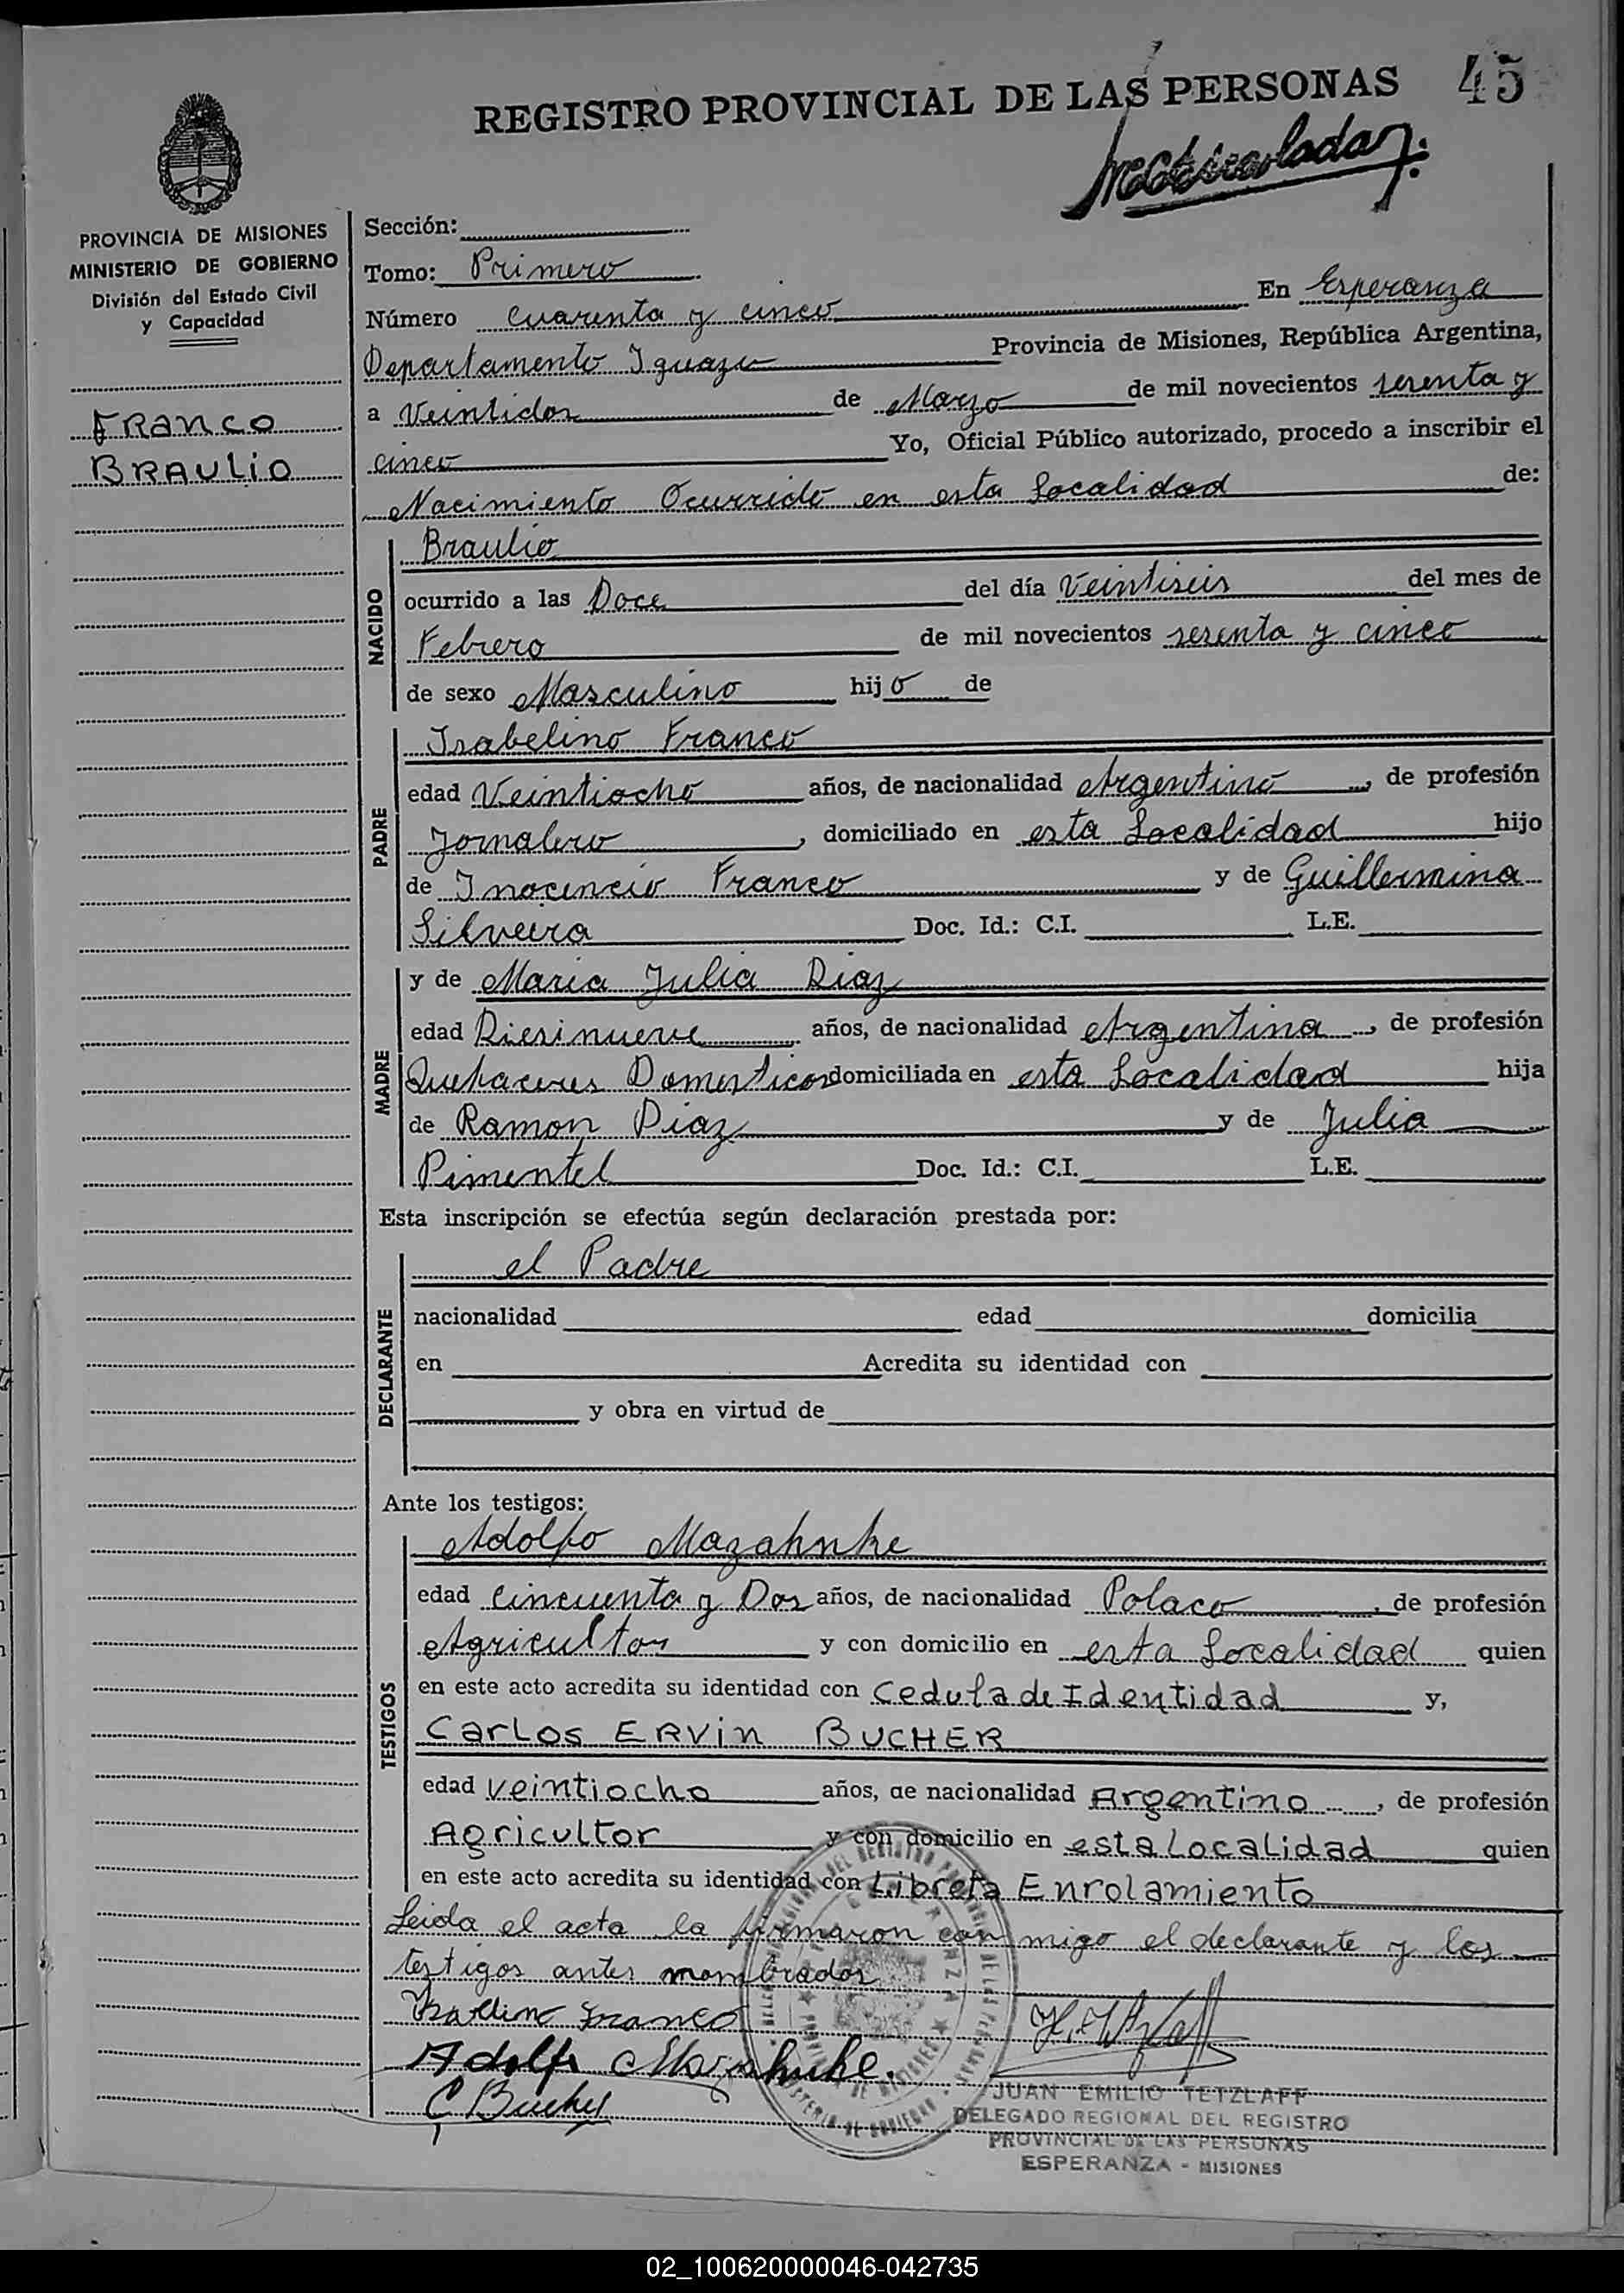 REGISTRO PROVINCIAL DE LAS PERSONAS 45
PROVINCIA DE MISIONES
MINISTERIO DE GOBIERNO
División del Estado Civil
y Capacidad
FRANCO
BRAULIO
Sección:
Tomo: Primero
Número cuarenta y cinco En Esperanza
Departamento Iguazu Provincia de Misiones, República Argentina,
a Veintidos de Marzo de mil novecientos sesenta y
cinco Yo, Oficial Público autorizado, procedo a inscribir el
Nacimiento Ocurrido en esta Localidad de:
NACIDO
Braulio
ocurrido a las Doce del día Veintiseis del mes de
Febrero de mil novecientos sesenta y cinco
de sexo Masculino hijo de
PADRE
Isabelino Franco
edad Veintiocho años, de nacionalidad Argentino, de profesión
Jornalero, domiciliado en esta Localidad hijo
de Inocencio Franco y de Guillermina
Silveira Doc. Id.: C.I. L.E.
MADRE
y de Maria Julia Diaz
edad Diesinueve años, de nacionalidad Argentina, de profesión
Quehaceres Domesticos domiciliada en esta Localidad hija
de Ramon Diaz y de Julia
Pimentel Doc. Id.: C.I. L.E.
Esta inscripción se efectúa según declaración prestada por:
DECLARANTE
el Padre
nacionalidad edad domicilia
en Acredita su identidad con
y obra en virtud de
Ante los testigos:
TESTIGOS
Adolfo Mazahnke
edad Cincuenta y Dos años, de nacionalidad Polaco, de profesión
Agricultor y con domicilio en esta Localidad quien
en este acto acredita su identidad con Cedula de Identidad y,
Carlos ERVin BUCHER
edad veintiocho años, de nacionalidad Argentino, de profesión
Agricultor y con domicilio en esta Localidad quien
en este acto acredita su identidad con Libreta Enrolamiento
Leida el acta la firmaron con migo el declarante y los
testigos antes mombrados
Franco
Adolfo
C Bucher
JUAN EMILIO TETZLAFF
DELEGADO REGIONAL DEL REGISTRO
PROVINCIAL DE LAS PERSONAS
ESPERANZA - MISIONES
02_100620000046-042735